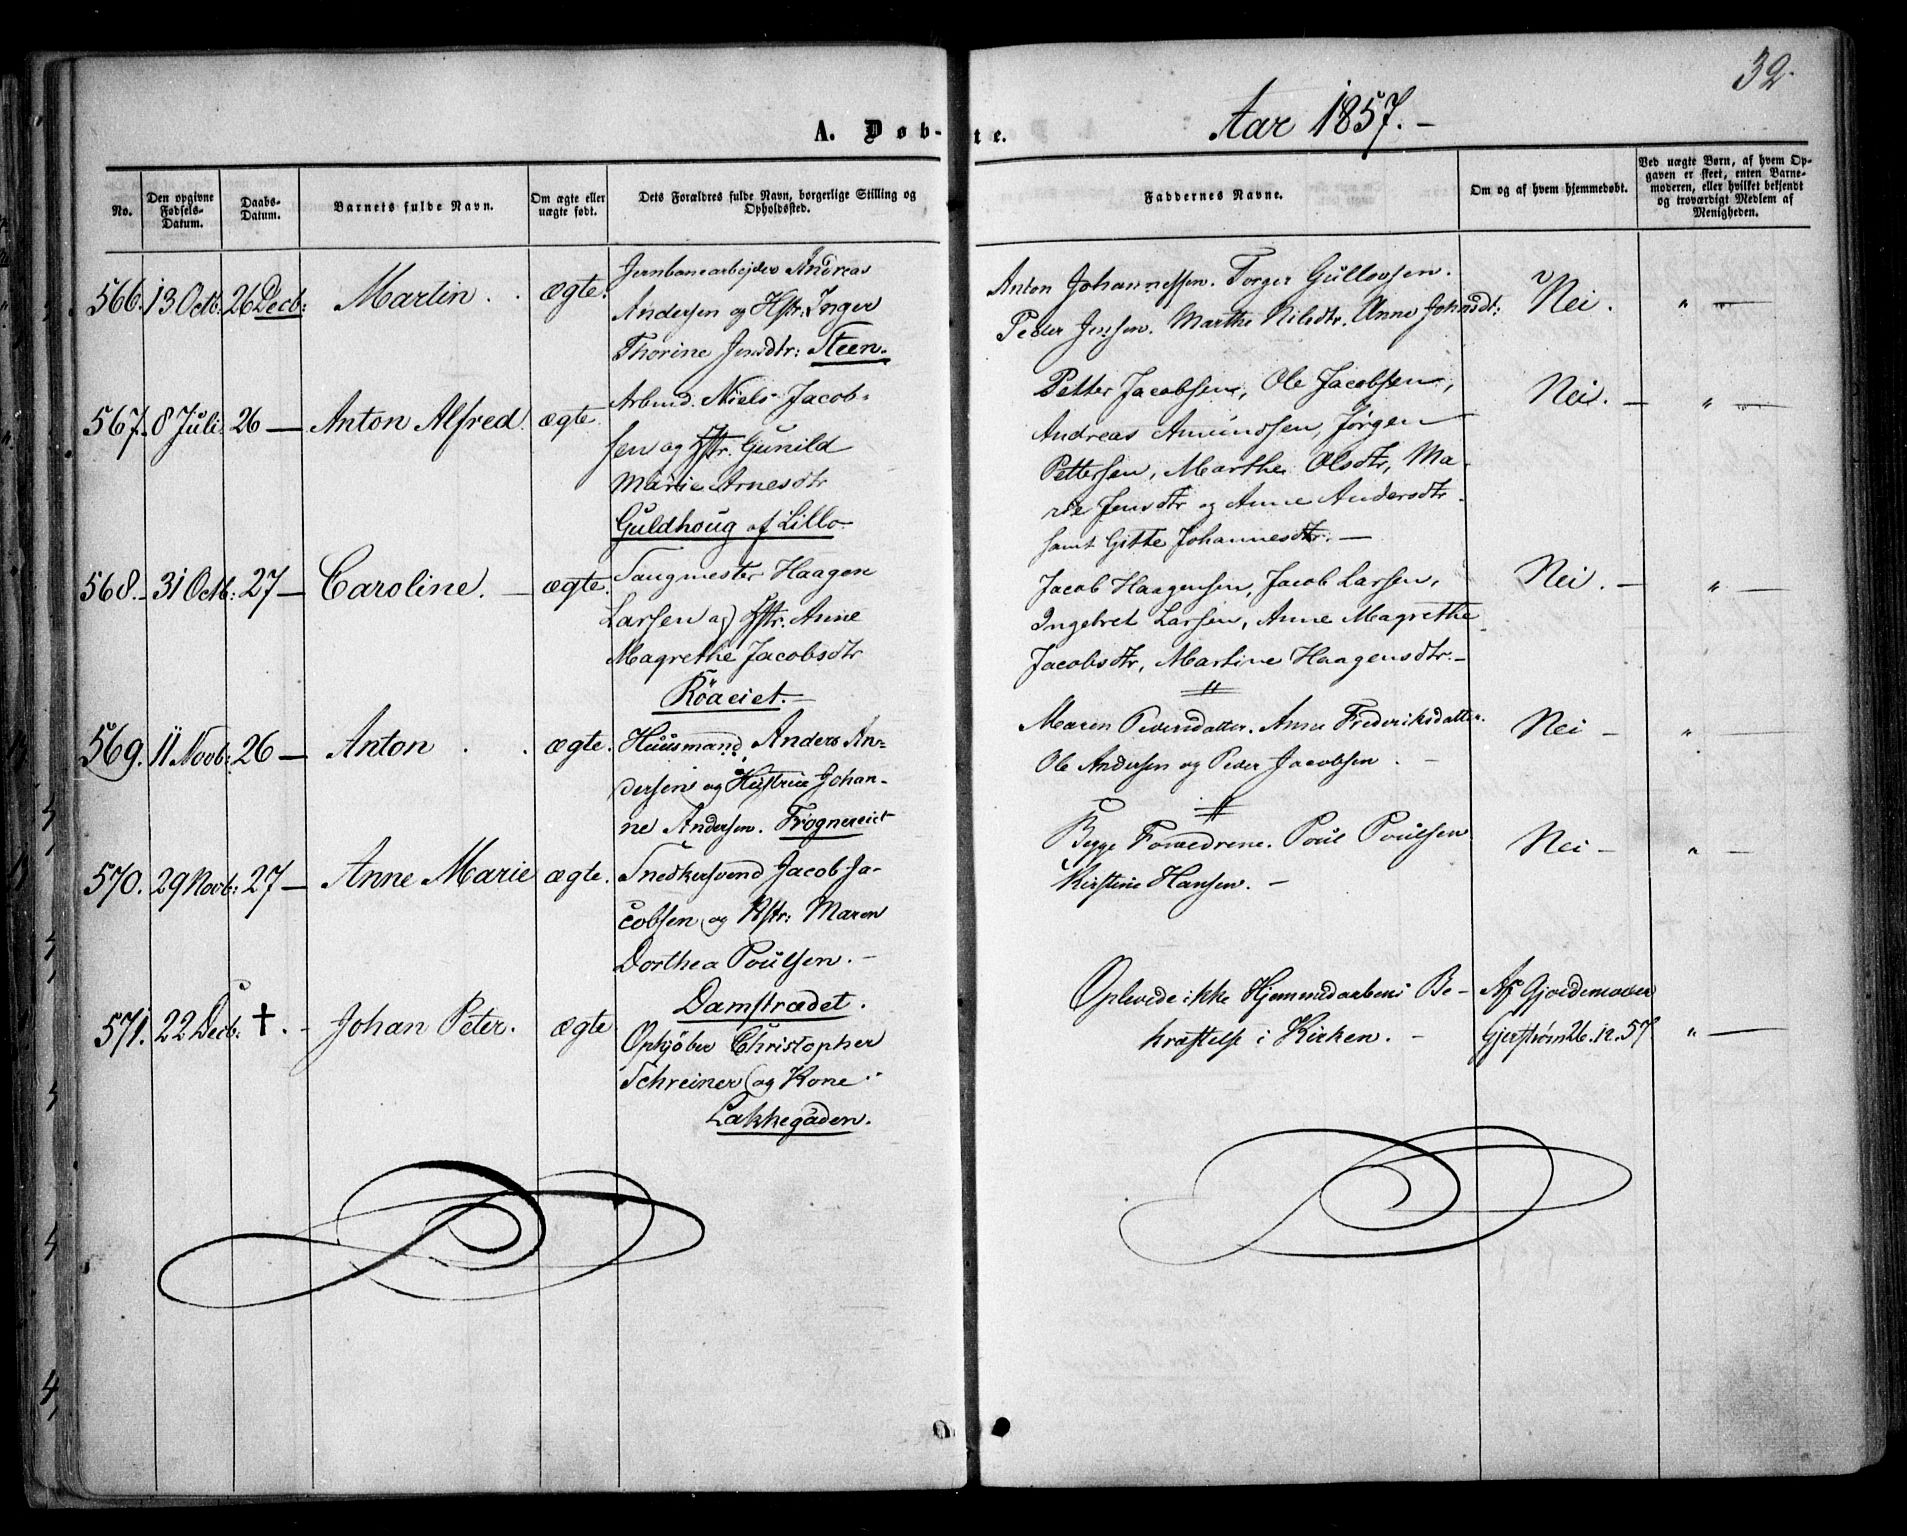 32.
A. Døb-te.
Aar 1857.-
No.
Den opgivne Fødsels-Datum.
Daabs-Datum.
Barnets fulde Navn.
Om ægte eller uægte født.
Dets Forældres fulde Navn, borgerlige Stilling og Opholdssted.
Faddernes Navne.
Om og af hvem hjemmedøbt.
Ved uægte Børn, af hvem Op-
gaven er skeet, enten Barne-
moderen, eller hvilket bekjendt
og troværdigt Medlem af
Menigheden.
566. 13 Octb: 26 Decb: Martin. ægte.
Jernbanearbejder Andreas
Andersen og Hstr: Inger
Thorine Jensdtr: Steen.
Anton Johannessen. Torger Gullovsen.
Peder Jensen. Marthe Nilsdtr. Anne Johnsdt:
Nei. " —
567. 8 Juli 26 — Anton Alfred. ægte.
Arbmd. Niels Jacob-
sen og Hstr. Gunild
Marie Arnesdtr
Guldhoug af Lillo
Petter Jacobsen, Ole Jacobsen,
Andreas Amundsen, Jørgen
Pettersen, Marthe Olsdtr, Ma-
rie Jensdtr og Anne Andersdtr
samt Gitte Johannesdtr. —
Nei. — " —
568. 31 Octb: 27 — Caroline. — ægte.
Saugmester Haagen
Larsen og Hstr. Anne
Magrethe Jacobsdtr
Röaeiet. —
Jacob Haagensen, Jacob Larsen,
Ingebret Larsen, Anne Magrethe
Jacobsdtr, Martine Haagensdtr. —
Nei. — " —
569. 11 Novb: 26 — Anton . . ægte.
Huusmand Anders An-
dersen og Hustrue Johan-
ne Andersen. Frognereiet
Maren Pedersdatter. Anne Frederiksdatter.
Ole Andersen og Peder Jacobsen. —
Nei — " —
570. 29 Novb: 27 — Anne Marie ægte.
Snedkersvend Jacob Ja-
cobsen og Hstr: Maren
Dorthea Poulsen. —
Damstrædet.
Begge Forældrene. Poul Poulsen
Kirstine Hansen. —
Nei — " —
571. 22 Decb: †. - Johan Peter. ægte
Opkjøber Christopher
Schreiner og Kone.
Lakkegaden.
Oplevede ikke Hjemmedaabens Be-
kræftelse i Kirken. —
Af Gjordemoder
Gjerstrøm 26.12.57 " —